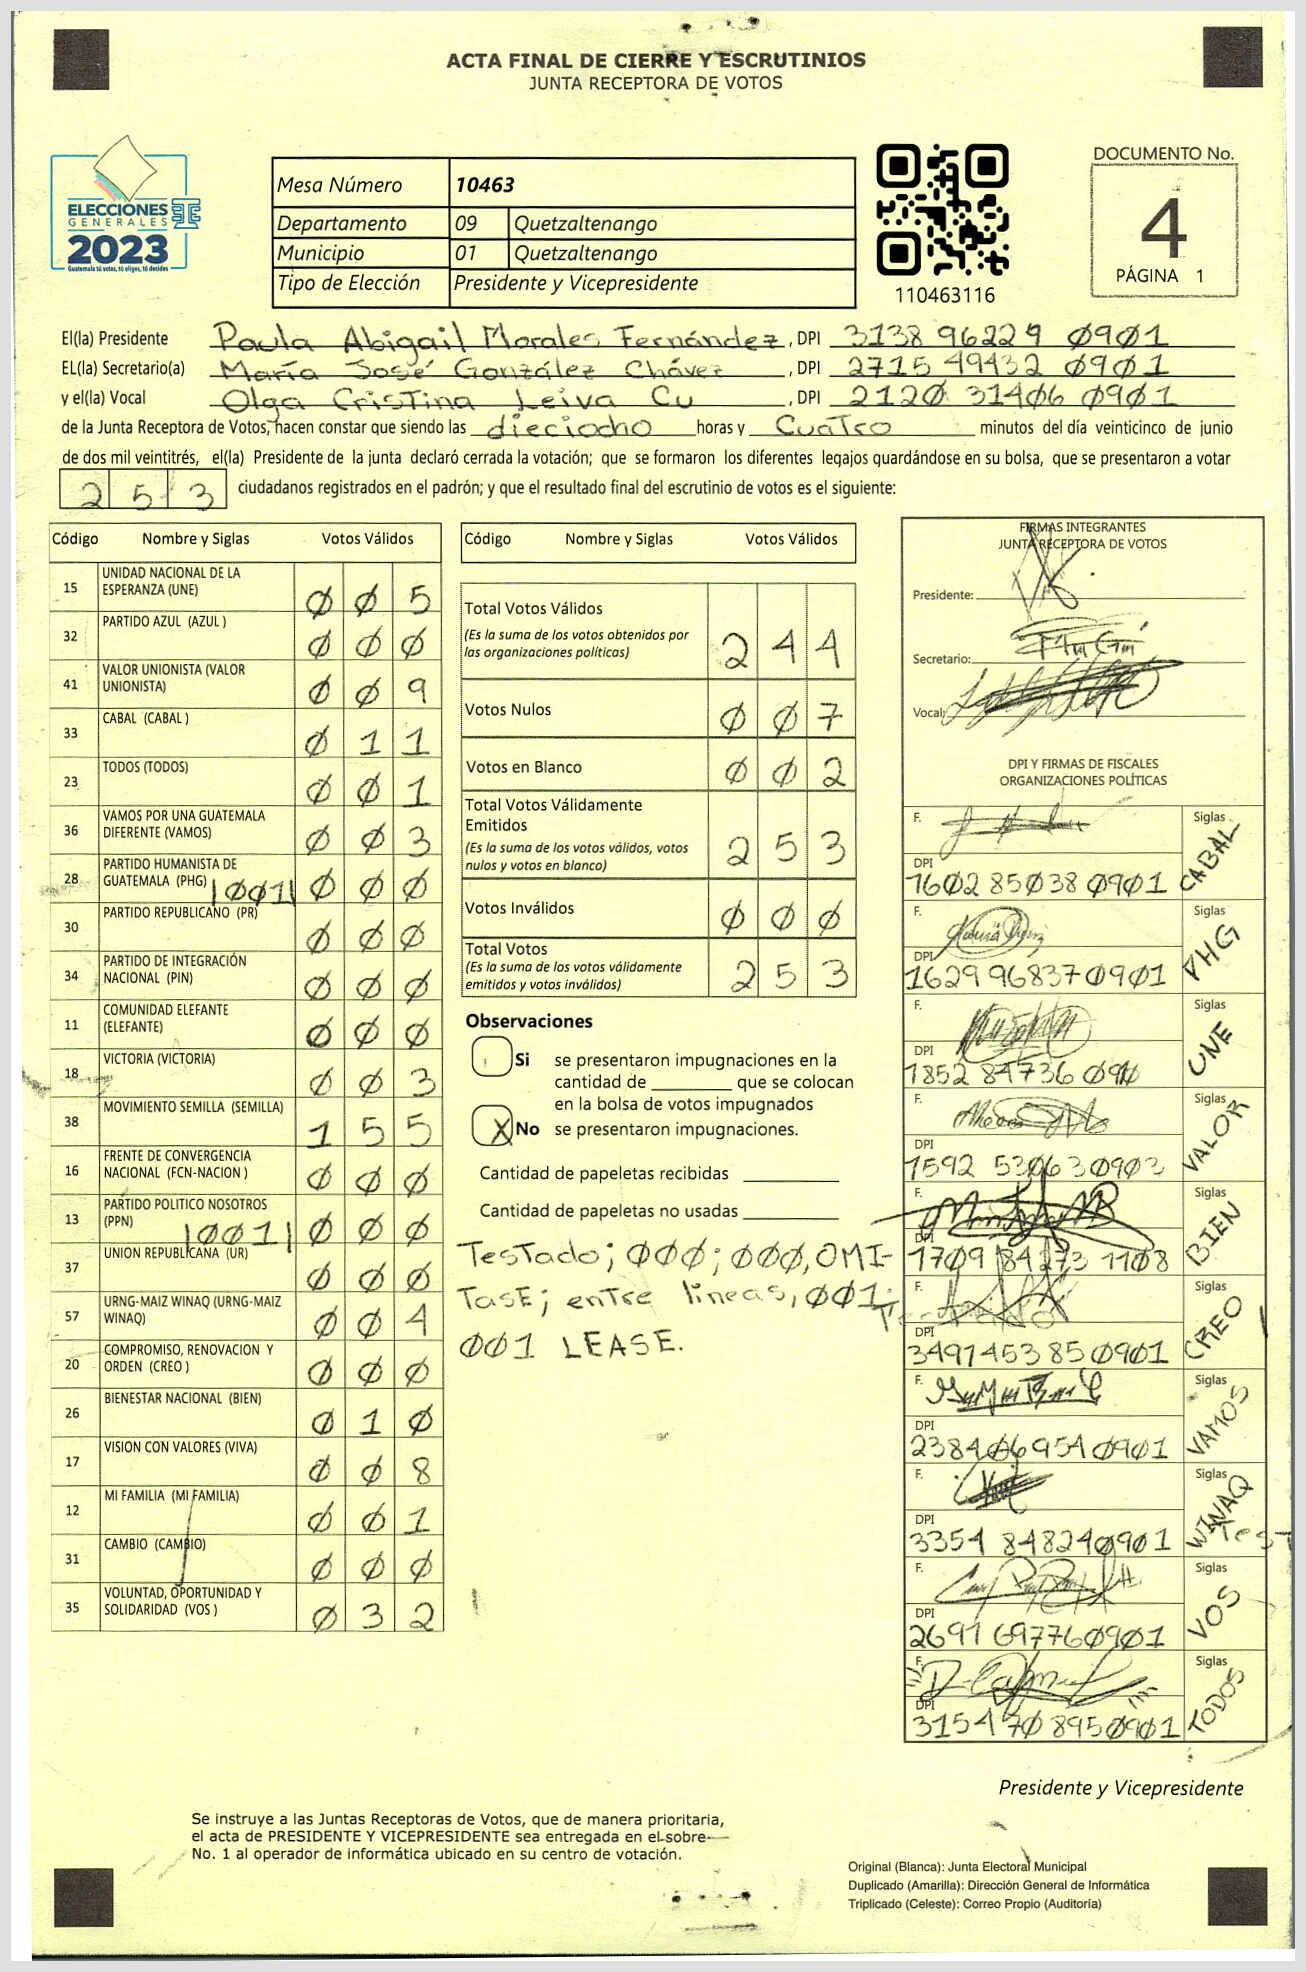 ACTA FINAL DE CIERRE Y ESCRUTINIOS
JUNTA RECEPTORA DE VOTOS
ELECCIONES
GENERALES
2023
Guatemala tú votas, tú eliges, tú decides
Mesa Número 10463
Departamento 09 Quetzaltenango
Municipio 01 Quetzaltenango
Tipo de Elección Presidente y Vicepresidente
110463116
DOCUMENTO No.
4
PÁGINA 1
El(la) Presidente Paula Abigail Morales Fernández, DPI 3138 96229 0901
EL(la) Secretario(a) María José González Chávez, DPI 2715 49432 0901
y el(la) Vocal Olga Cristina Leiva Cu, DPI 2120 31406 0901
de la Junta Receptora de Votos, hacen constar que siendo las dieciocho horas y cuatro minutos del día veinticinco de junio
de dos mil veintitrés, el(la) Presidente de la junta declaró cerrada la votación; que se formaron los diferentes legajos guardándose en su bolsa, que se presentaron a votar
253 ciudadanos registrados en el padrón; y que el resultado final del escrutinio de votos es el siguiente:
Código Nombre y Siglas Votos Válidos
15 UNIDAD NACIONAL DE LA ESPERANZA (UNE) 005
32 PARTIDO AZUL (AZUL ) 000
41 VALOR UNIONISTA (VALOR UNIONISTA) 009
33 CABAL (CABAL ) 011
23 TODOS (TODOS) 001
36 VAMOS POR UNA GUATEMALA DIFERENTE (VAMOS) 003
28 PARTIDO HUMANISTA DE GUATEMALA (PHG) |001| 000
30 PARTIDO REPUBLICANO (PR) 000
34 PARTIDO DE INTEGRACIÓN NACIONAL (PIN) 000
11 COMUNIDAD ELEFANTE (ELEFANTE) 000
18 VICTORIA (VICTORIA) 003
38 MOVIMIENTO SEMILLA (SEMILLA) 155
16 FRENTE DE CONVERGENCIA NACIONAL (FCN-NACION ) 000
13 PARTIDO POLITICO NOSOTROS (PPN) |001| 000
37 UNION REPUBLICANA (UR) 000
57 URNG-MAIZ WINAQ (URNG-MAIZ WINAQ) 004
20 COMPROMISO, RENOVACION Y ORDEN (CREO ) 000
26 BIENESTAR NACIONAL (BIEN) 010
17 VISION CON VALORES (VIVA) 008
12 MI FAMILIA (MI FAMILIA) 001
31 CAMBIO (CAMBIO) 000
35 VOLUNTAD, OPORTUNIDAD Y SOLIDARIDAD (VOS ) 032
Código Nombre y Siglas Votos Válidos
Total Votos Válidos 244
(Es la suma de los votos obtenidos por
las organizaciones políticas)
Votos Nulos 007
Votos en Blanco 002
Total Votos Válidamente
Emitidos 253
(Es la suma de los votos válidos, votos
nulos y votos en blanco)
Votos Inválidos 000
Total Votos 253
(Es la suma de los votos válidamente
emitidos y votos inválidos)
Observaciones
Si se presentaron impugnaciones en la
cantidad de ________ que se colocan
en la bolsa de votos impugnados
X No se presentaron impugnaciones.
Cantidad de papeletas recibidas ________
Cantidad de papeletas no usadas ________
Testado; 000; 000, OMI-
TasE; entre lineas, 001;
001 LEASE.
FIRMAS INTEGRANTES
JUNTA RECEPTORA DE VOTOS
Presidente:
Secretario:
Vocal:
DPI Y FIRMAS DE FISCALES
ORGANIZACIONES POLÍTICAS
F. Siglas CABAL
DPI 1602 85038 0901
F. Siglas PHG
DPI 1629 96837 0901
F. Siglas UNE
DPI 1852 84736
F. Siglas VALOR
DPI 1592 53063 0903
F. Siglas BIEN
DPI 1709 84273 1108
F. Siglas CREO
DPI 3491 45385 0901
F. Siglas VAMOS
DPI 2384 06954 0901
F. Siglas WINAQ
DPI 3354 84824 0901
F. Siglas VOS
DPI 2691 69776 0901
F. Siglas TODOS
DPI 3154 70895 0901
Presidente y Vicepresidente
Se instruye a las Juntas Receptoras de Votos, que de manera prioritaria,
el acta de PRESIDENTE Y VICEPRESIDENTE sea entregada en el sobre
No. 1 al operador de informática ubicado en su centro de votación.
Original (Blanca): Junta Electoral Municipal
Duplicado (Amarilla): Dirección General de Informática
Triplicado (Celeste): Correo Propio (Auditoría)